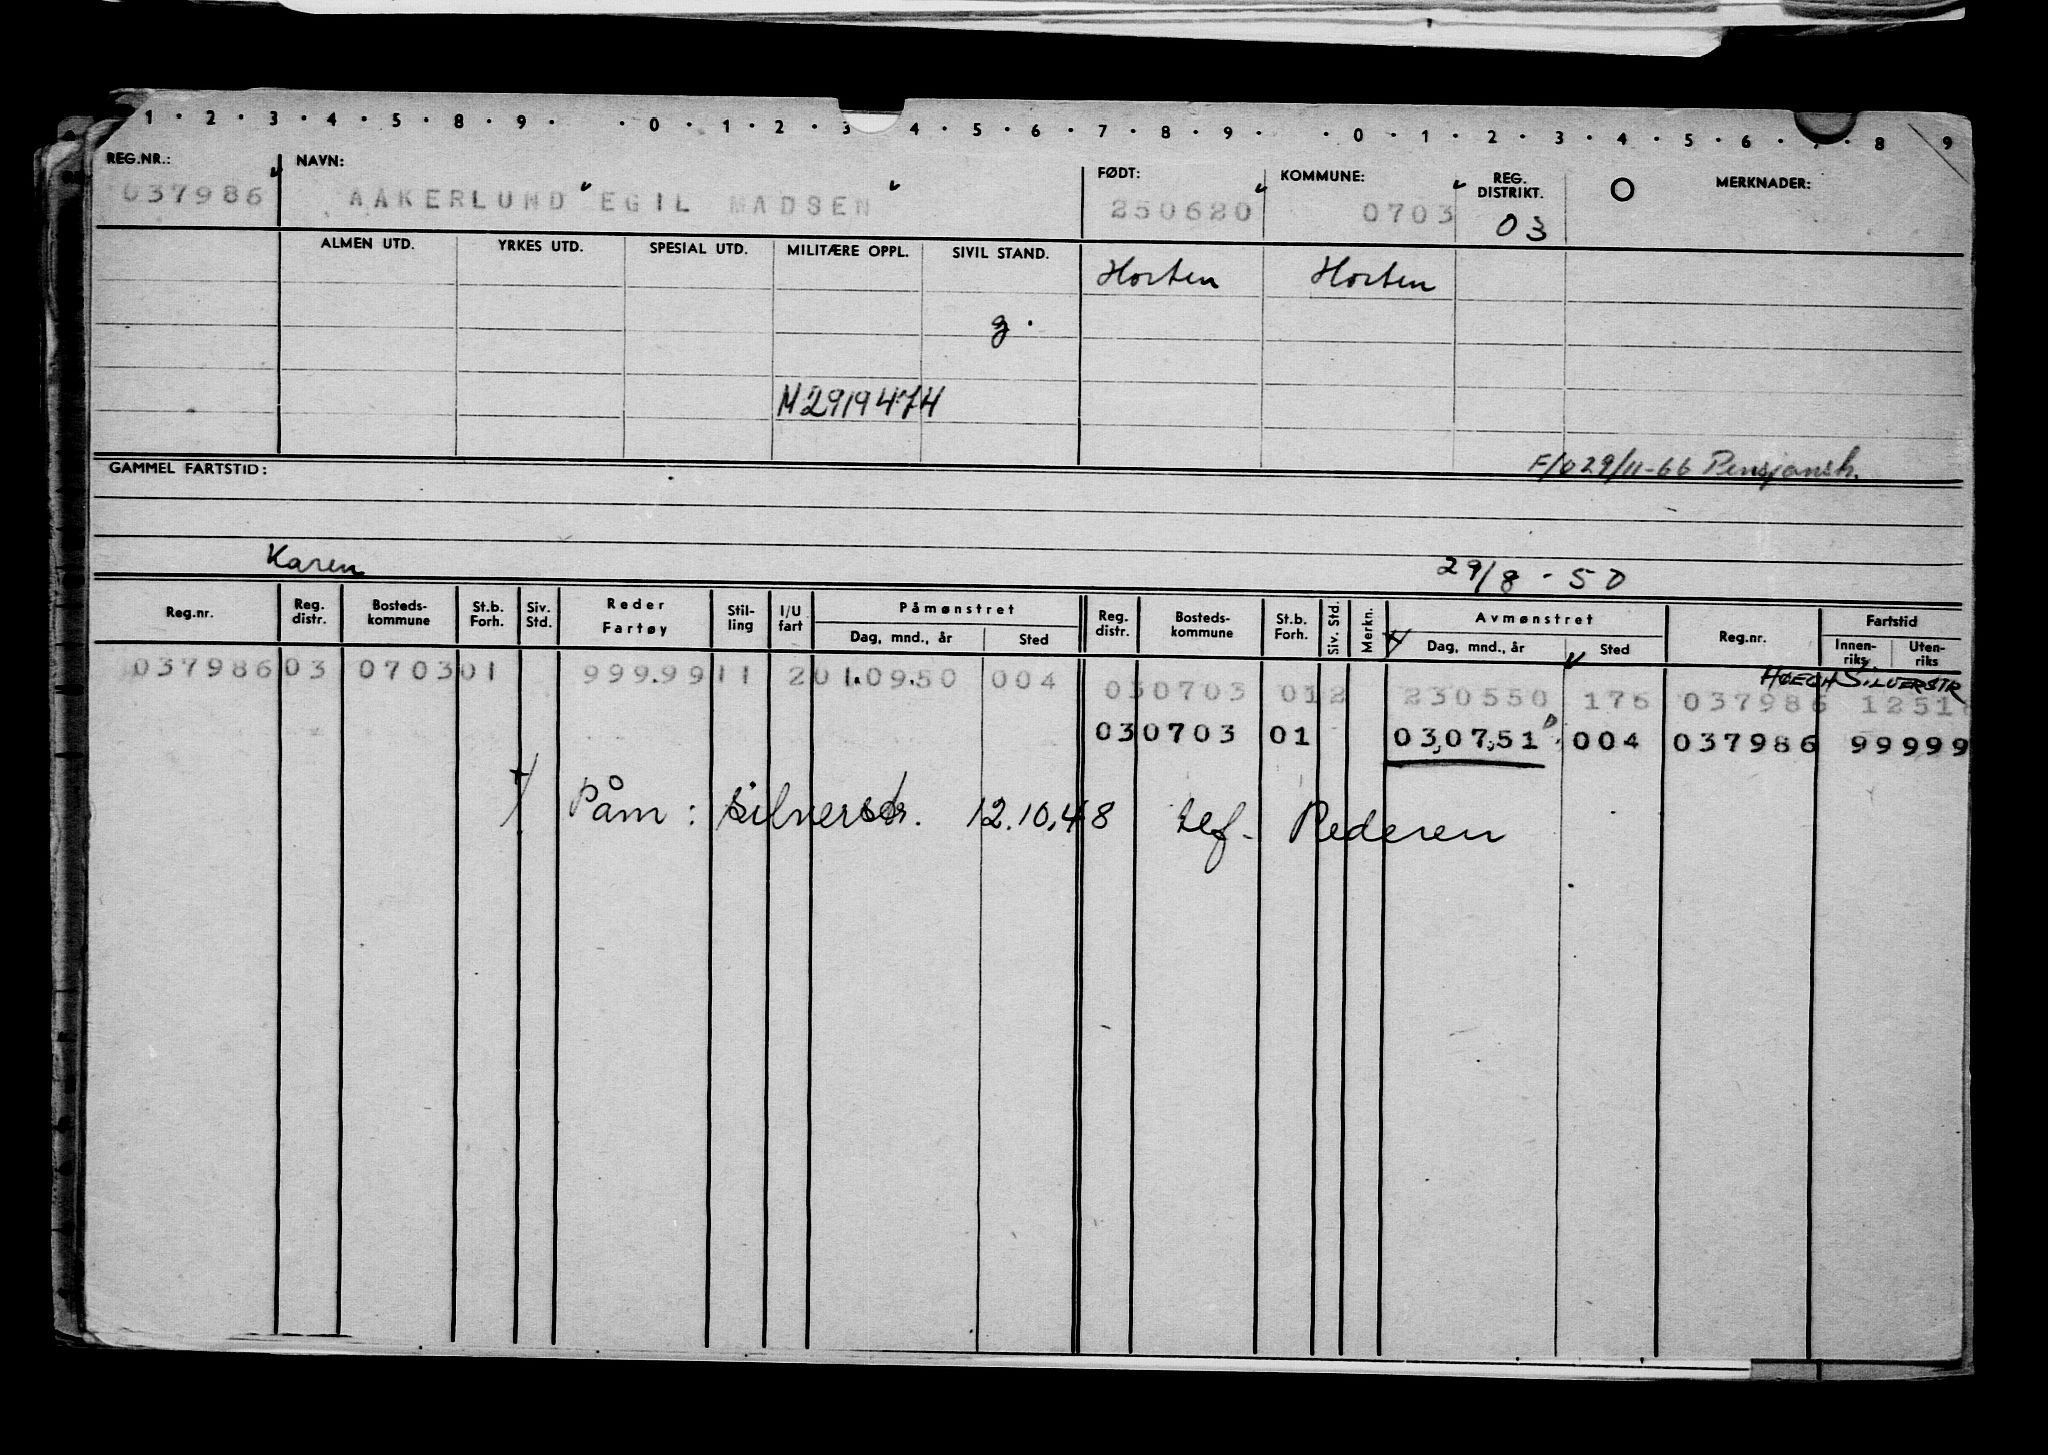 1 · 2 · 3 · 4 · 5 · 8 · 9 · · 0 · 1 · 2 · 3 · 4 · 5 · 6 · 7 · 8 · 9 · · 0 · 1 · 2 · 3 · 4 · 5 · 6 · 7 · 8 9
REG.NR.: NAVN: FØDT: KOMMUNE: REG. DISTRIKT. O MERKNADER:
037986 AAKERLUND EGIL MADSEN 250620 0703 03
ALMEN UTD. YRKES UTD. SPESIAL UTD. MILITÆRE OPPL. SIVIL STAND.
Horten Horten
g.
M2919474
GAMMEL FARTSTID: F/b 29/11-66 Pensjonsk.
Karen 29/8 - 50
Reg.nr. Reg. distr. Bosteds-kommune St.b. Forh. Siv. Std. Reder Fartøy Stil-ling I/U fart Påmønstret Reg. distr. Bosteds-kommune St.b. Forh. Siv. Std. Merkn. Avmønstret Reg.nr. Fartstid
Dag, mnd., år Sted Dag, mnd., år Sted Innen-riks Uten-riks
HØEGH SILVERSTR
037986 03 0703 01 999.99 11 2 01.09.50 004
030703 012 230550 176 037986 1251
030703 01 03,07,51 004 037986 99999
Påm: Silverstr. 12.10.48 tlf. Rederen